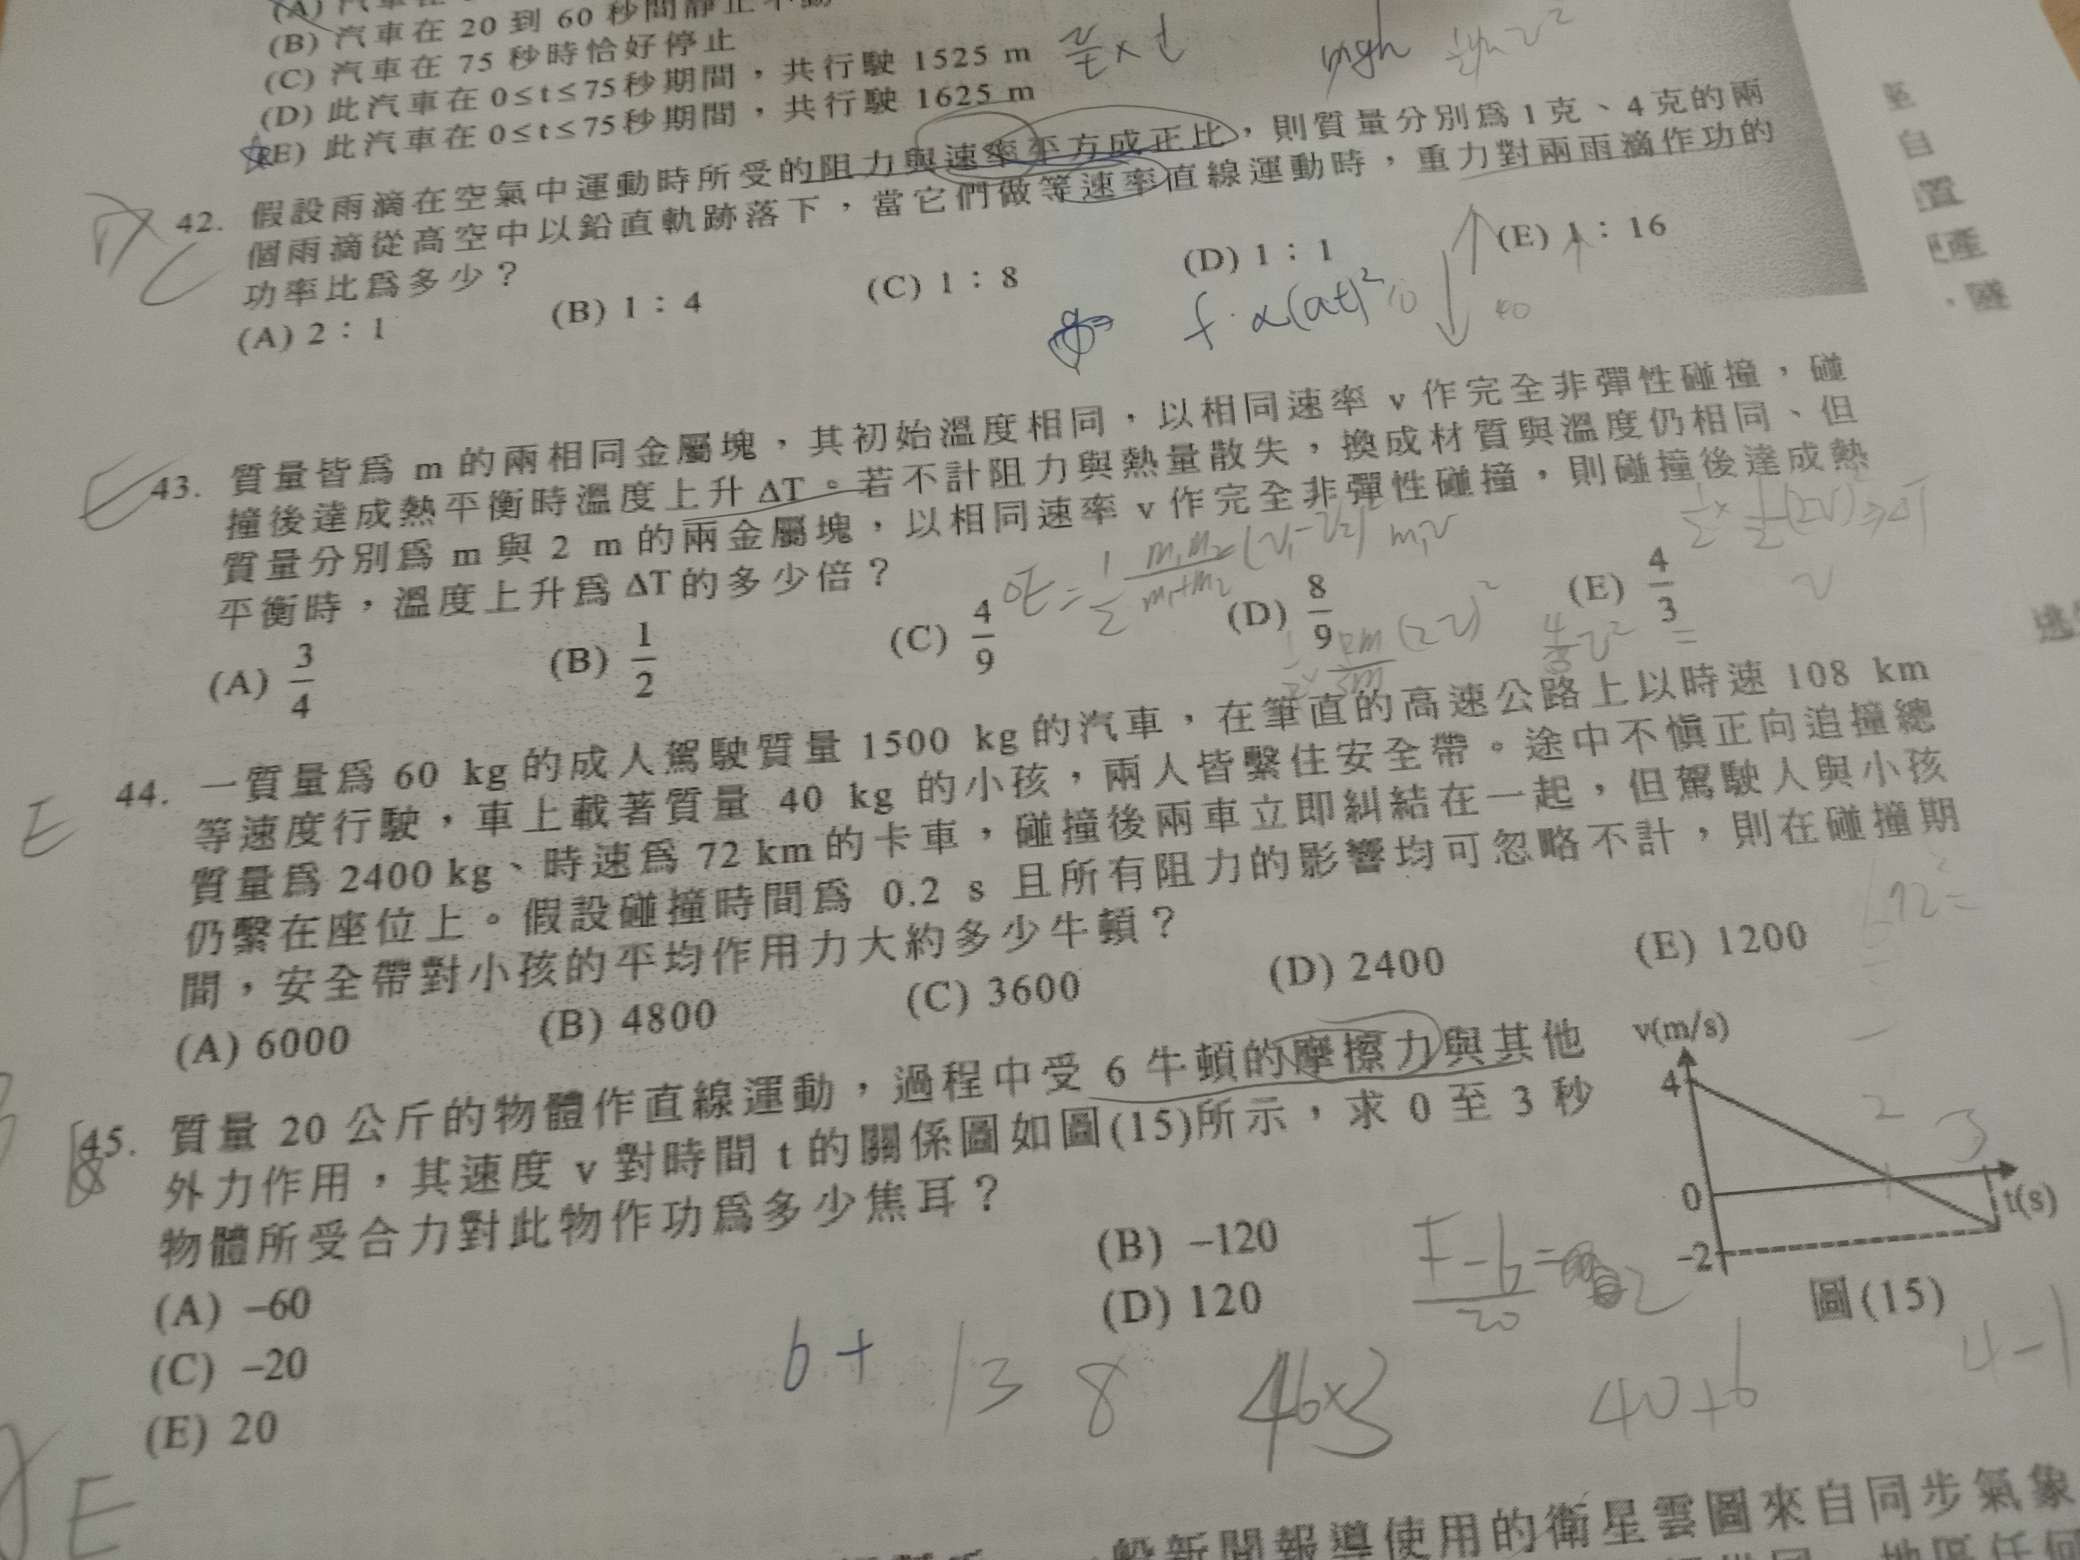 (B) 汽車在 20 到 60 秒間靜止不動
(C) 汽車在 75 秒時恰好停止
(D) 此汽車在 0≤t≤75秒期間，共行駛 1525 m
(E) 此汽車在 0≤t≤75秒期間，共行駛 1625 m
mgh
42. 假設雨滴在空氣中運動時所受的阻力與速率平方成正比，則質量分別為 1 克、4 克的兩
個雨滴從高空中以鉛直軌跡落下，當它們做等速率直線運動時，重力對兩雨滴作功的
功率比為多少？
(A) 2：1 (B) 1：4 (C) 1：8 (D) 1：1 (E) 1：16
f ∝(at)² 10 40
43. 質量皆為 m 的兩相同金屬塊，其初始溫度相同，以相同速率 v 作完全非彈性碰撞，碰
撞後達成熱平衡時溫度上升 ΔT。若不計阻力與熱量散失，換成材質與溫度仍相同、但
質量分別為 m 與 2 m 的兩金屬塊，以相同速率 v 作完全非彈性碰撞，則碰撞後達成熱
平衡時，溫度上升為 ΔT 的多少倍？
(A) 3/4 (B) 1/2 (C) 4/9 (D) 8/9 (E) 4/3
E
44. 一質量為 60 kg 的成人駕駛質量 1500 kg 的汽車，在筆直的高速公路上以時速 108 km
等速度行駛，車上載著質量 40 kg 的小孩，兩人皆繫住安全帶。途中不慎正向追撞總
質量為 2400 kg、時速為 72 km 的卡車，碰撞後兩車立即糾結在一起，但駕駛人與小孩
仍繫在座位上。假設碰撞時間為 0.2 s 且所有阻力的影響均可忽略不計，則在碰撞期
間，安全帶對小孩的平均作用力大約多少牛頓？
(A) 6000 (B) 4800 (C) 3600 (D) 2400 (E) 1200
45. 質量 20 公斤的物體作直線運動，過程中受 6 牛頓的摩擦力與其他
外力作用，其速度 v 對時間 t 的關係圖如圖(15)所示，求 0 至 3 秒
物體所受合力對此物作功為多少焦耳？
(A) −60 (B) −120
(C) −20 (D) 120
(E) 20
v(m/s)
4
2 3
0
t(s)
−2
圖(15)
6+ 13 8 46×3 40+6 4−1
E
一般新聞報導使用的衛星雲圖來自同步氣象